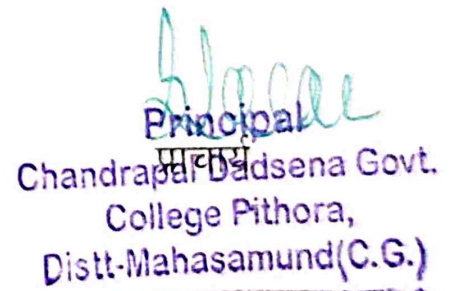 Principal
प्राचार्य
Chandrapal Dadsena Govt.
College Pithora,
Distt-Mahasamund(C.G.)